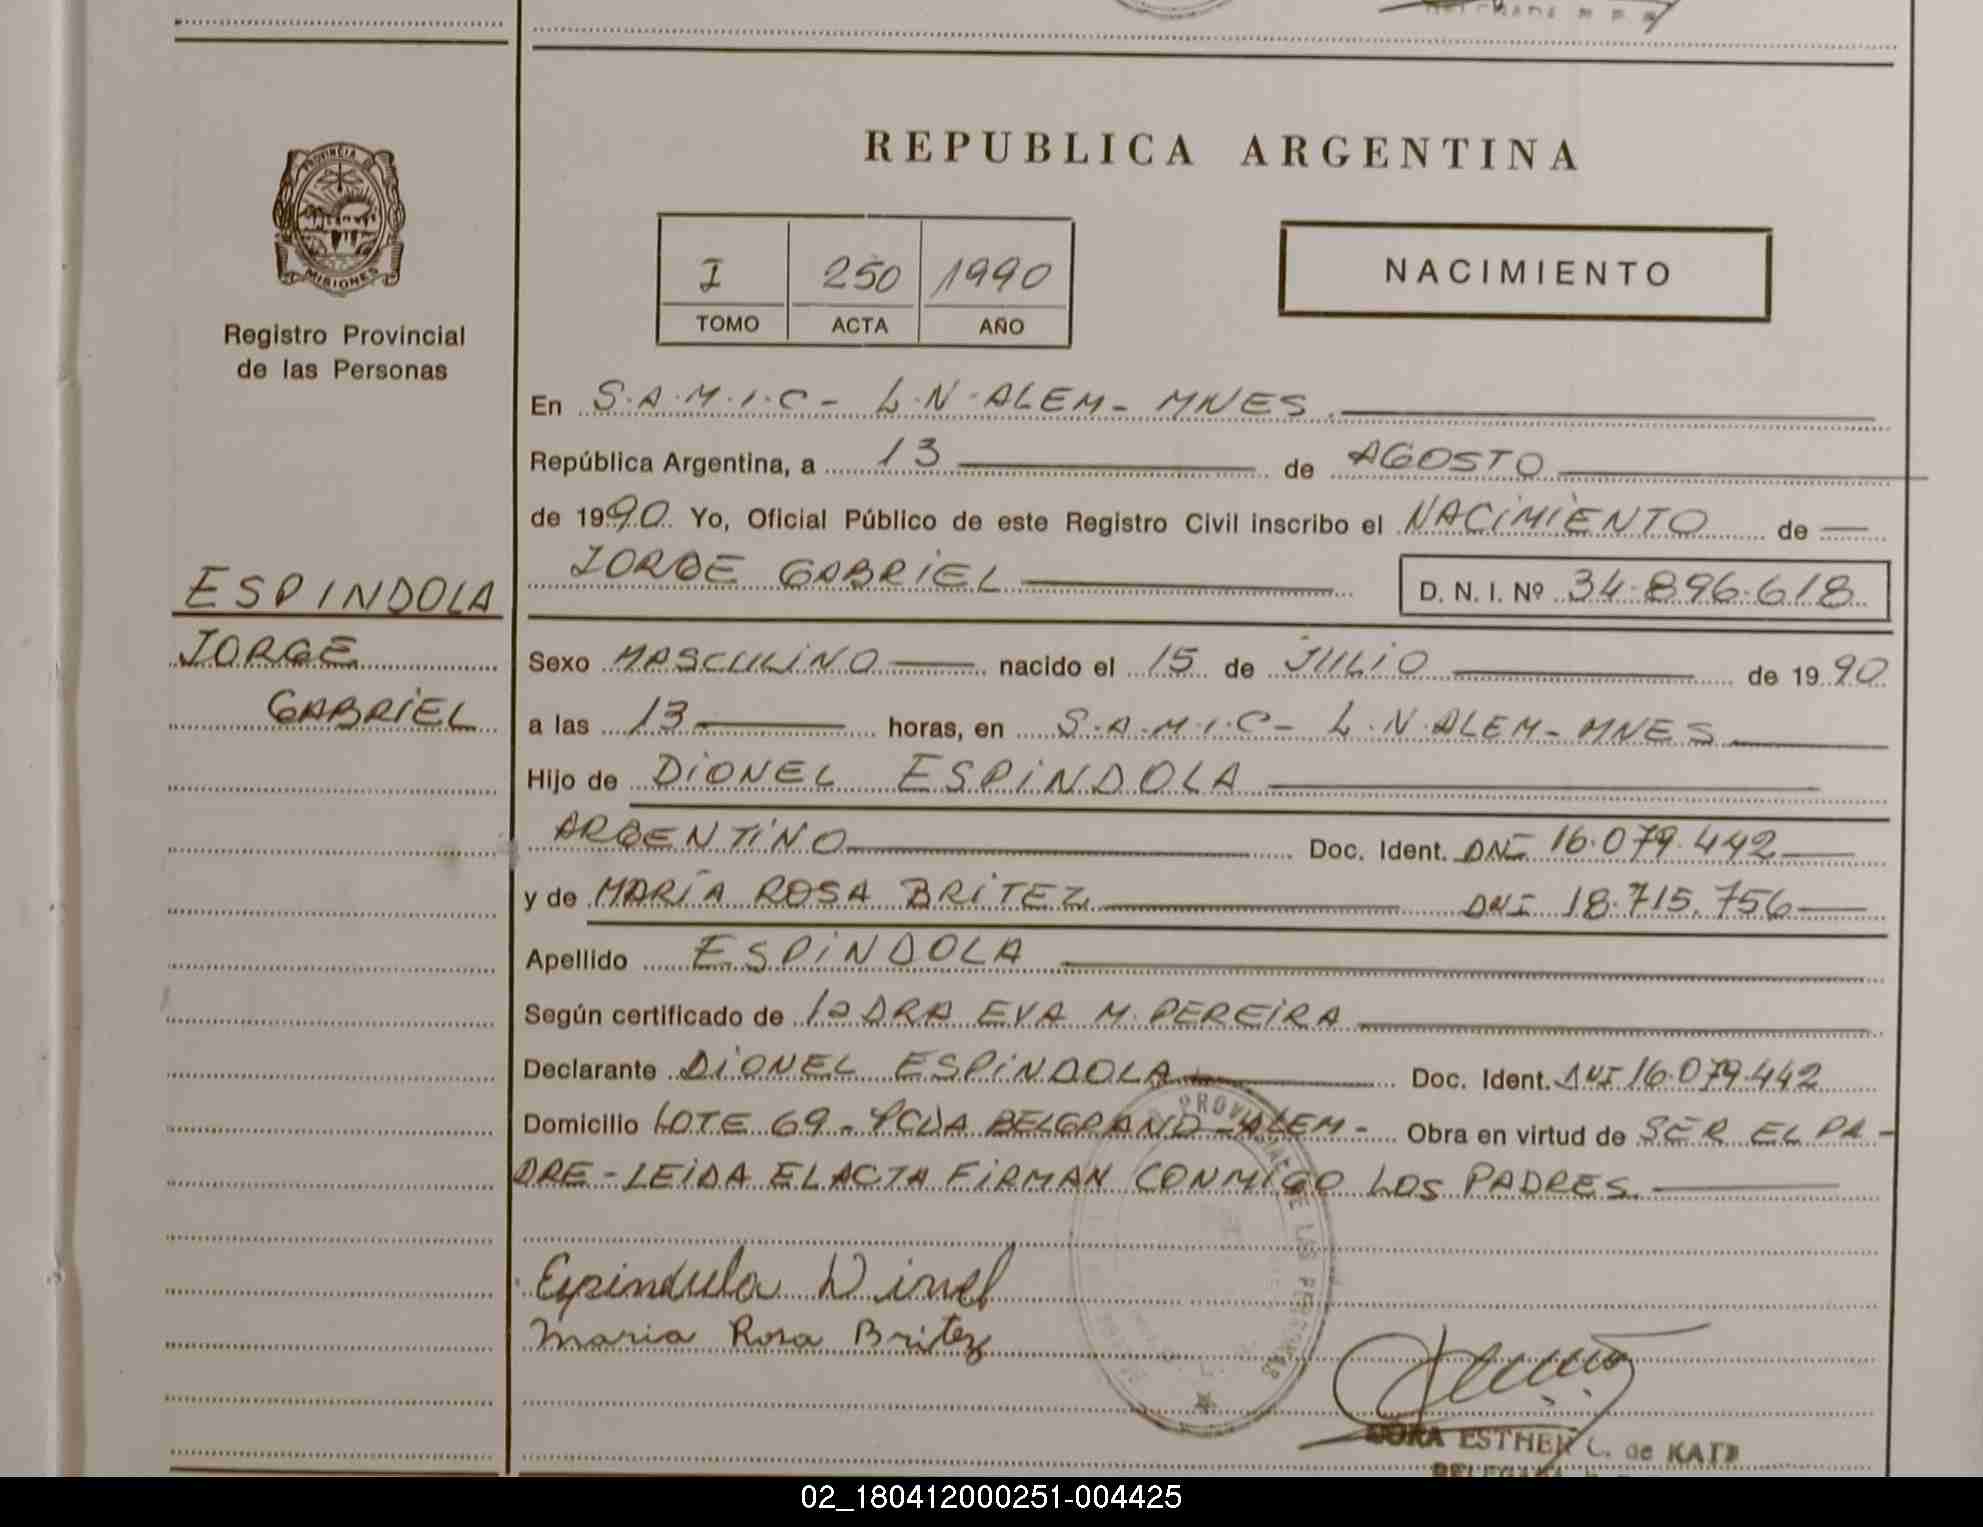 REPUBLICA ARGENTINA
PROVINCIA DE
MISIONES
Registro Provincial
de las Personas
I 250 1990
TOMO ACTA AÑO
NACIMIENTO
En S.A.M.I.C- L.N.ALEM- MNES.
República Argentina, a 13 de AGOSTO
de 1990. Yo, Oficial Público de este Registro Civil inscribo el NACIMIENTO de
JORGE GABRIEL D. N. I. Nº 34.896.618
ESPINDOLA
JORGE
GABRIEL
Sexo MASCULINO nacido el 15 de JULIO de 1990
a las 13 horas, en S.A.M.I.C- L.N.ALEM- MNES
Hijo de DIONEL ESPINDOLA
ARGENTINO Doc. Ident. DNI 16.079.442
y de MARÍA ROSA BRITEZ DNI 18.715.756
Apellido ESPINDOLA
Según certificado de la DRA EVA M. PEREIRA
Declarante DIONEL ESPINDOLA Doc. Ident. DNI 16.079.442
Domicilio LOTE 69- PCIA BELGRANO-ALEM- Obra en virtud de SER EL PA-
DRE-LEIDA EL ACTA FIRMAN CONMIGO LOS PADRES.
Espindula Dinel
Maria Rosa Britez
PROVINCIAL DE LAS PERSONAS
DORA ESTHER C. de KATZ
02_180412000251-004425